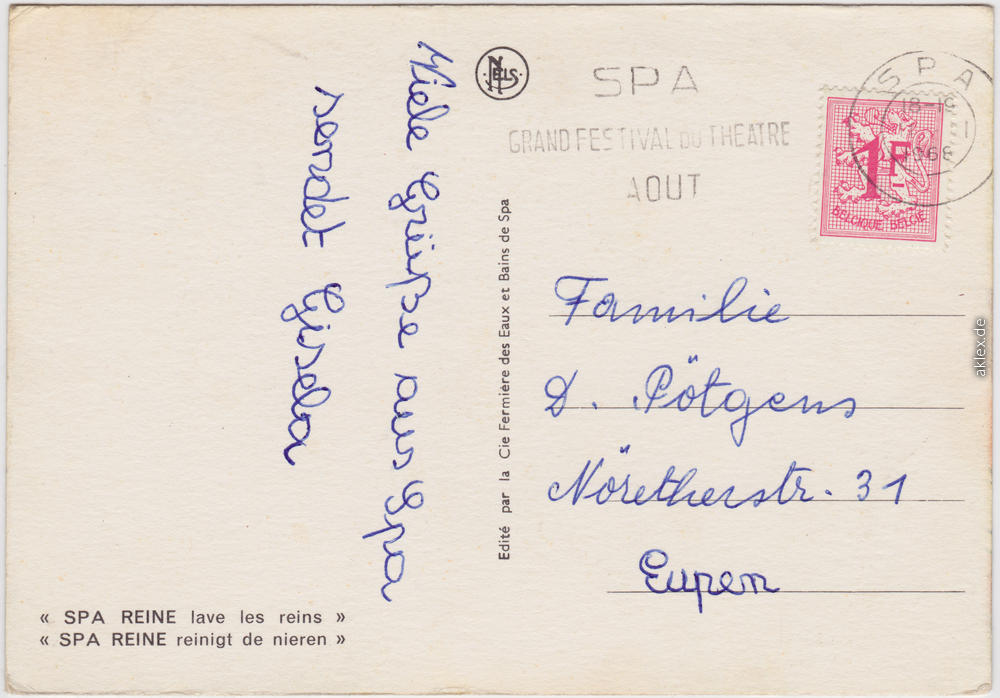 Viele Grüße aus Spa
sendet Gisela
NELS
SPA
GRAND FESTIVAL DU THEATRE
AOUT
SPA
18-19
1968
1F
BELGIQUE BELGIË
Edité par la Cie Fermière des Eaux et Bains de Spa
Familie
D. Pötgens
Nöretherstr. 31
Eupen
« SPA REINE lave les reins »
« SPA REINE reinigt de nieren »
aklex.de